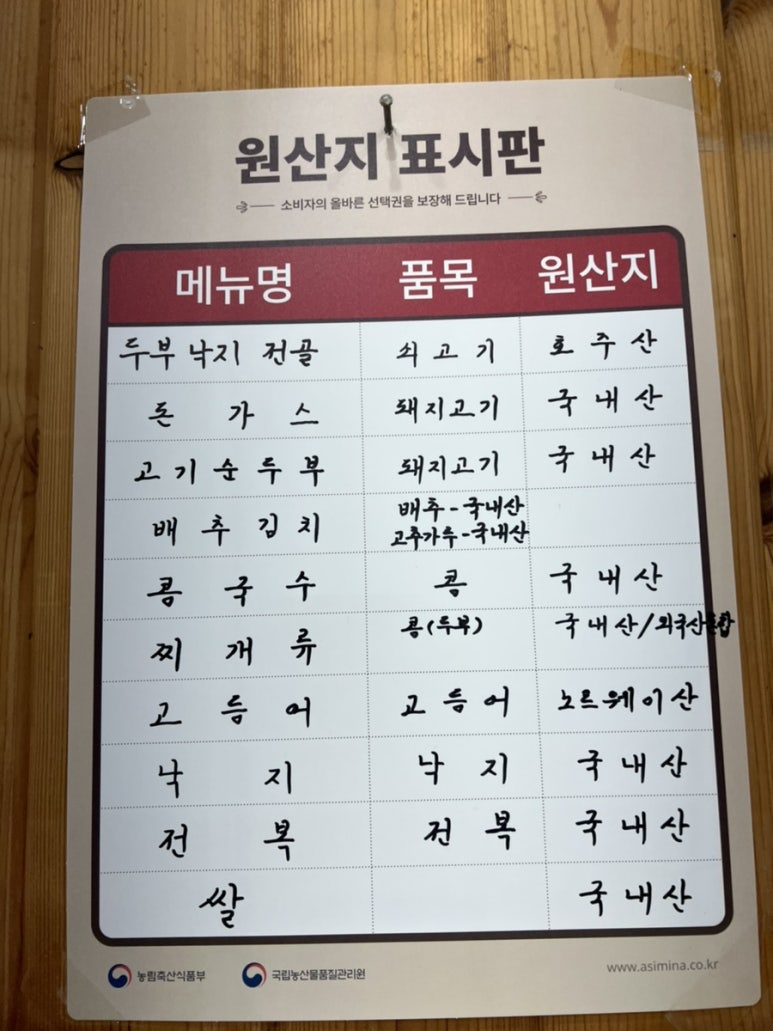 원산지 표시판
소비자의 올바른 선택권을 보장해 드립니다
메뉴명 품목 원산지
두부낙지 전골 쇠고기 호주산
돈가스 돼지고기 국내산
고기순두부 돼지고기 국내산
배추김치 배추-국내산
고추가루-국내산
콩국수 콩 국내산
찌개류 콩(두부) 국내산/외국산혼합
고등어 고등어 노르웨이산
낙지 낙지 국내산
전복 전복 국내산
쌀 국내산
농림축산식품부 국립농산물품질관리원 www.asimina.co.kr